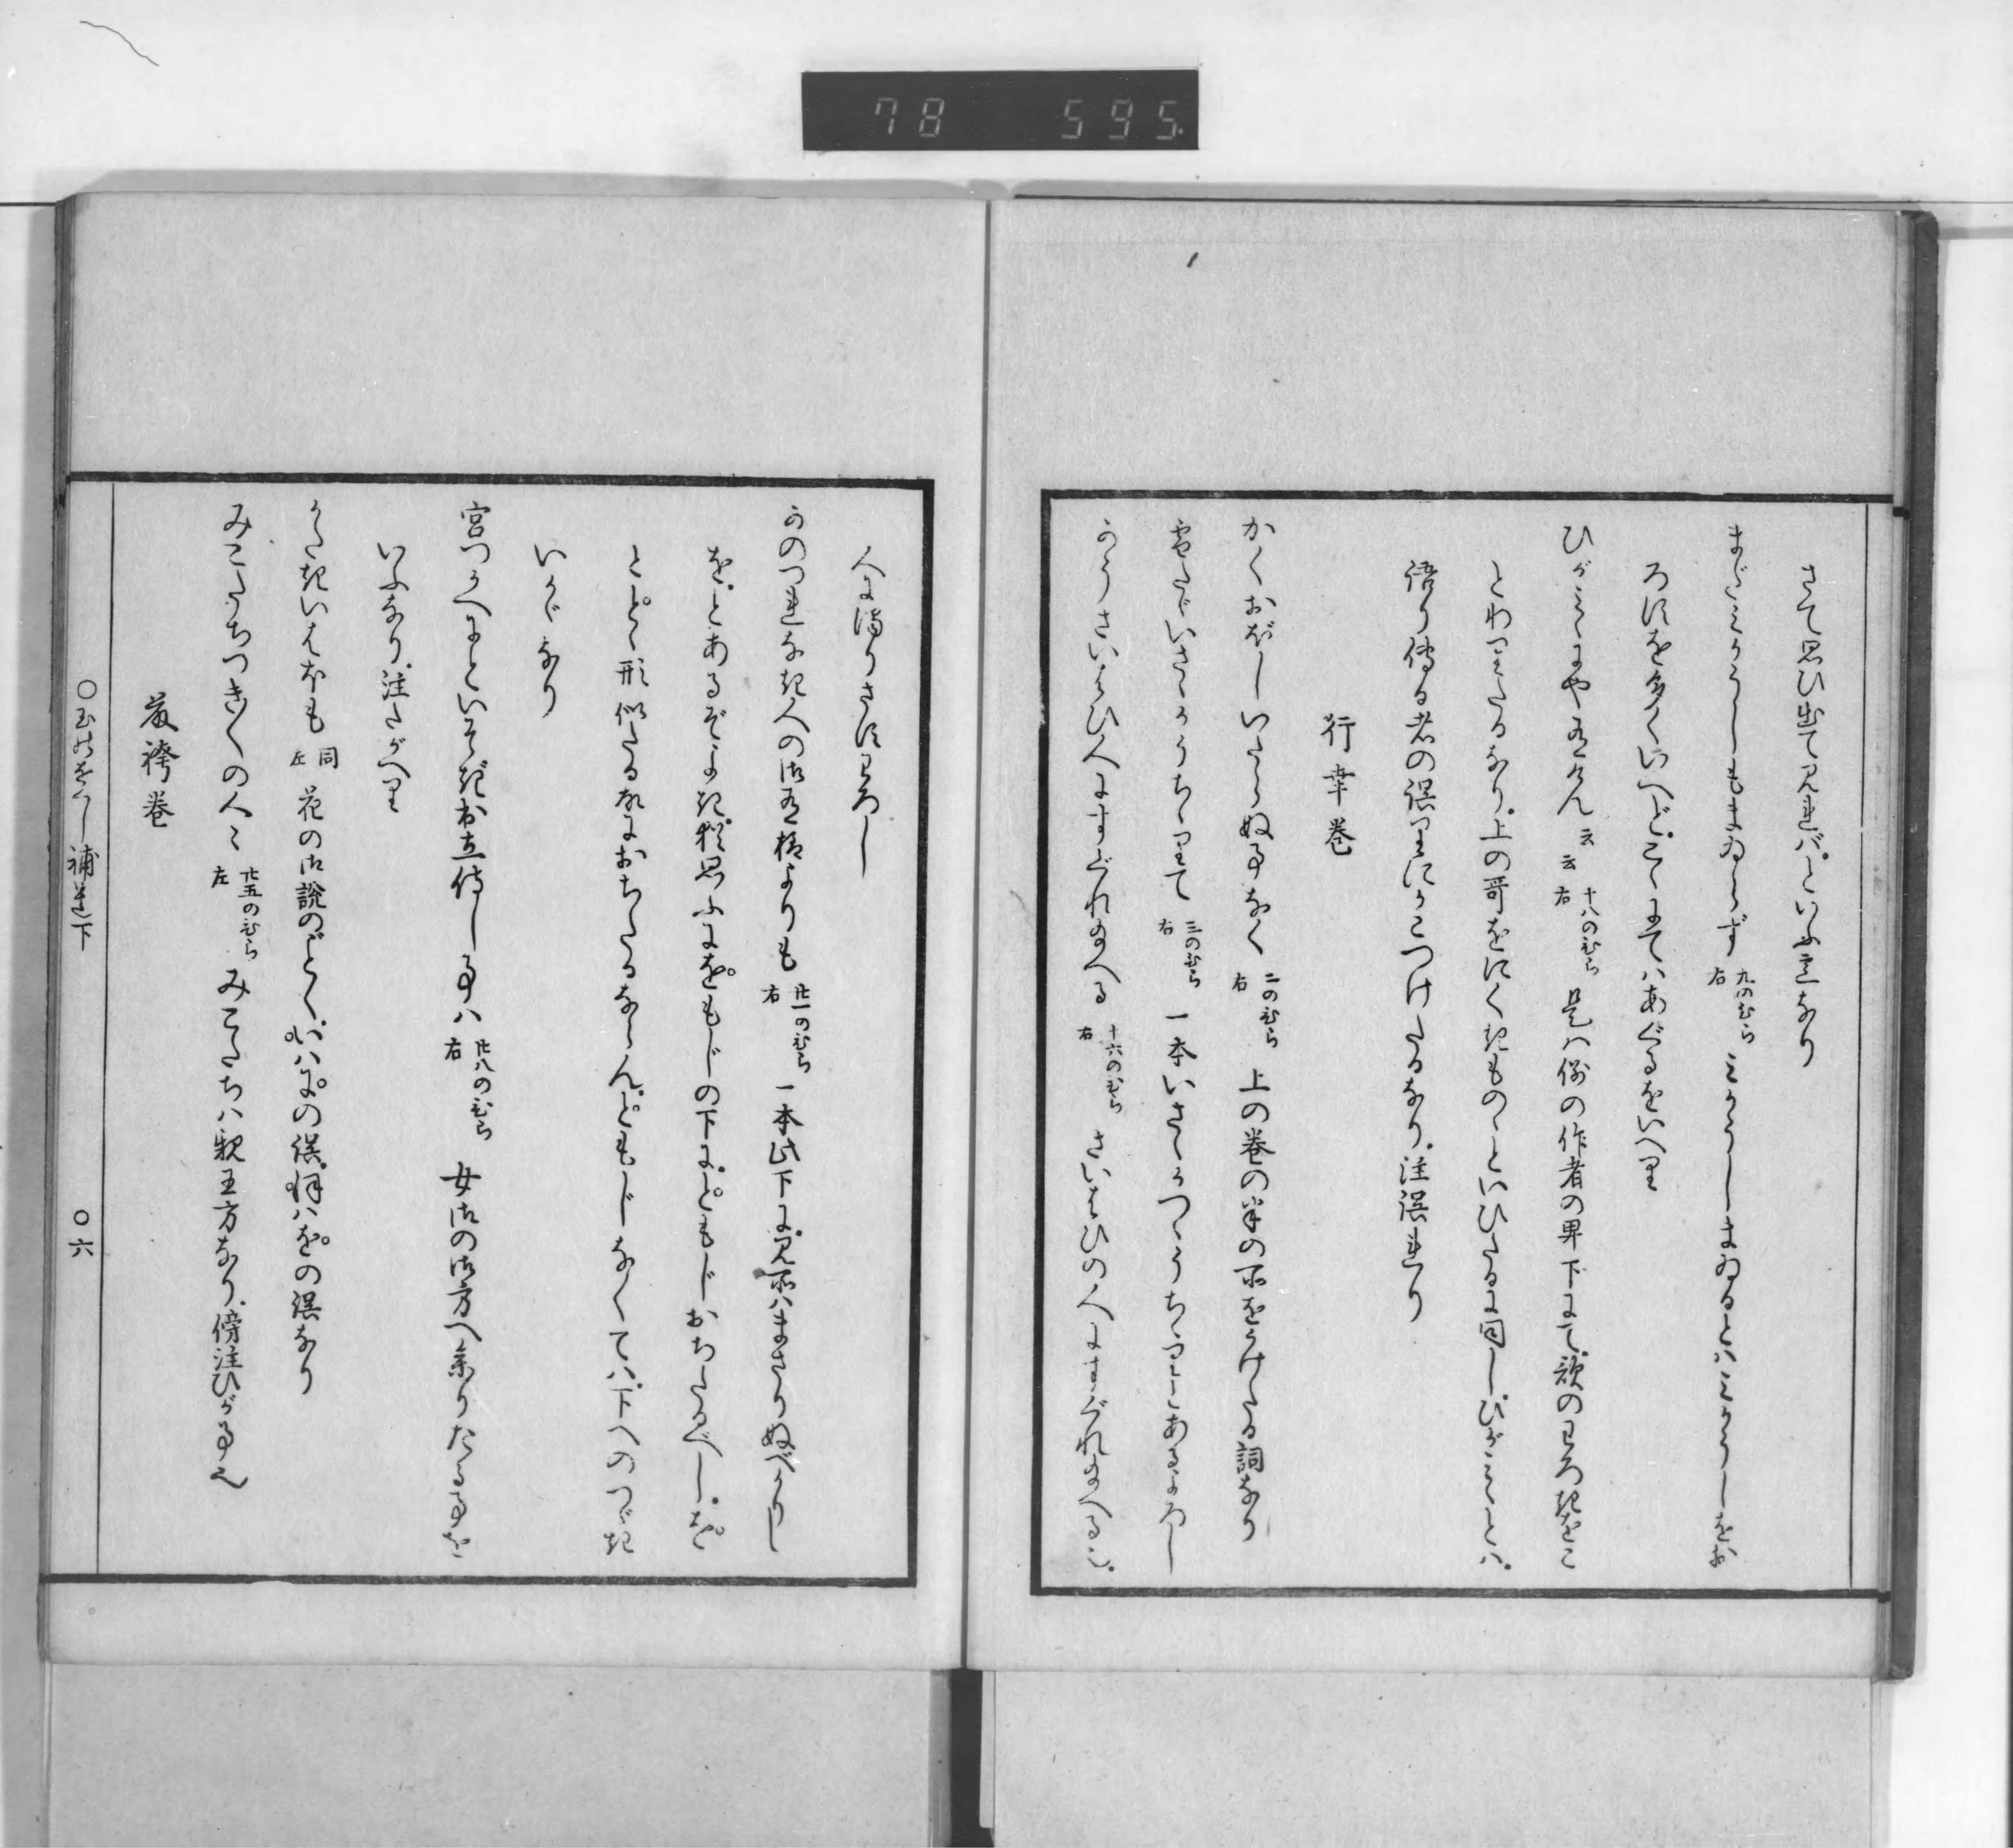 78 595
さて思ひ出て見れバ、といふ意なり
まだミかうしもまゐらず 九のひら右 ミかうしまゐるとハ、ミかうしをお
ろすを多くいへど、こゝにてハあぐるをいへり
ひがことにや有けん云云 十八のひら右 是ハ例の作者の卑下にて、歌のわろきをこ
とわりたるなり、上の哥をにくきものゝといひたるに同し、ひがことゝハ、
語り傳る者の誤りにかこつけたるなり、注誤れり
行幸巻
かくおぼしいたらぬ事なく 二のひら右 上の巻の末の所をうけたる詞なり
やだいさゝかうちゝりて 三のひら右 一本いさゝかつゝうちゝりとあるよろし
かうさいはひ人にすぐれ給へる 十六のひら右 さいはひの人にすぐれ給へる也、
人に満りさすわろし
かのつれなき人の御有様よりも 廿一のひら右 一本此下に、見所ハまさりぬべかりし
を、とあるぞよき、猶思ふにをもじの下に、どもじおちたるべし、を
とど、形似たる故におちたるならん、どもじなくてハ、下へのつゞき
いかゞなり
宮つかへにといそぎ出立侍し事ハ 廿八のひら右 女御の御方へ参りたる事を
いふなり、注たがへり
かたきいはほも 同左 花の御説のごとく、ハハにの誤、ハをの誤なり
みこたちつき〱の人〻 廿五のひら左 みこたちハ親王方なり、傍注ひが事也
藤袴巻
○玉のをくし補遺下 ○六